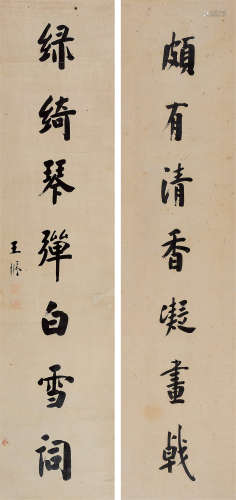 頗有清香凝畫戟
綠綺琴彈白雪詞
王